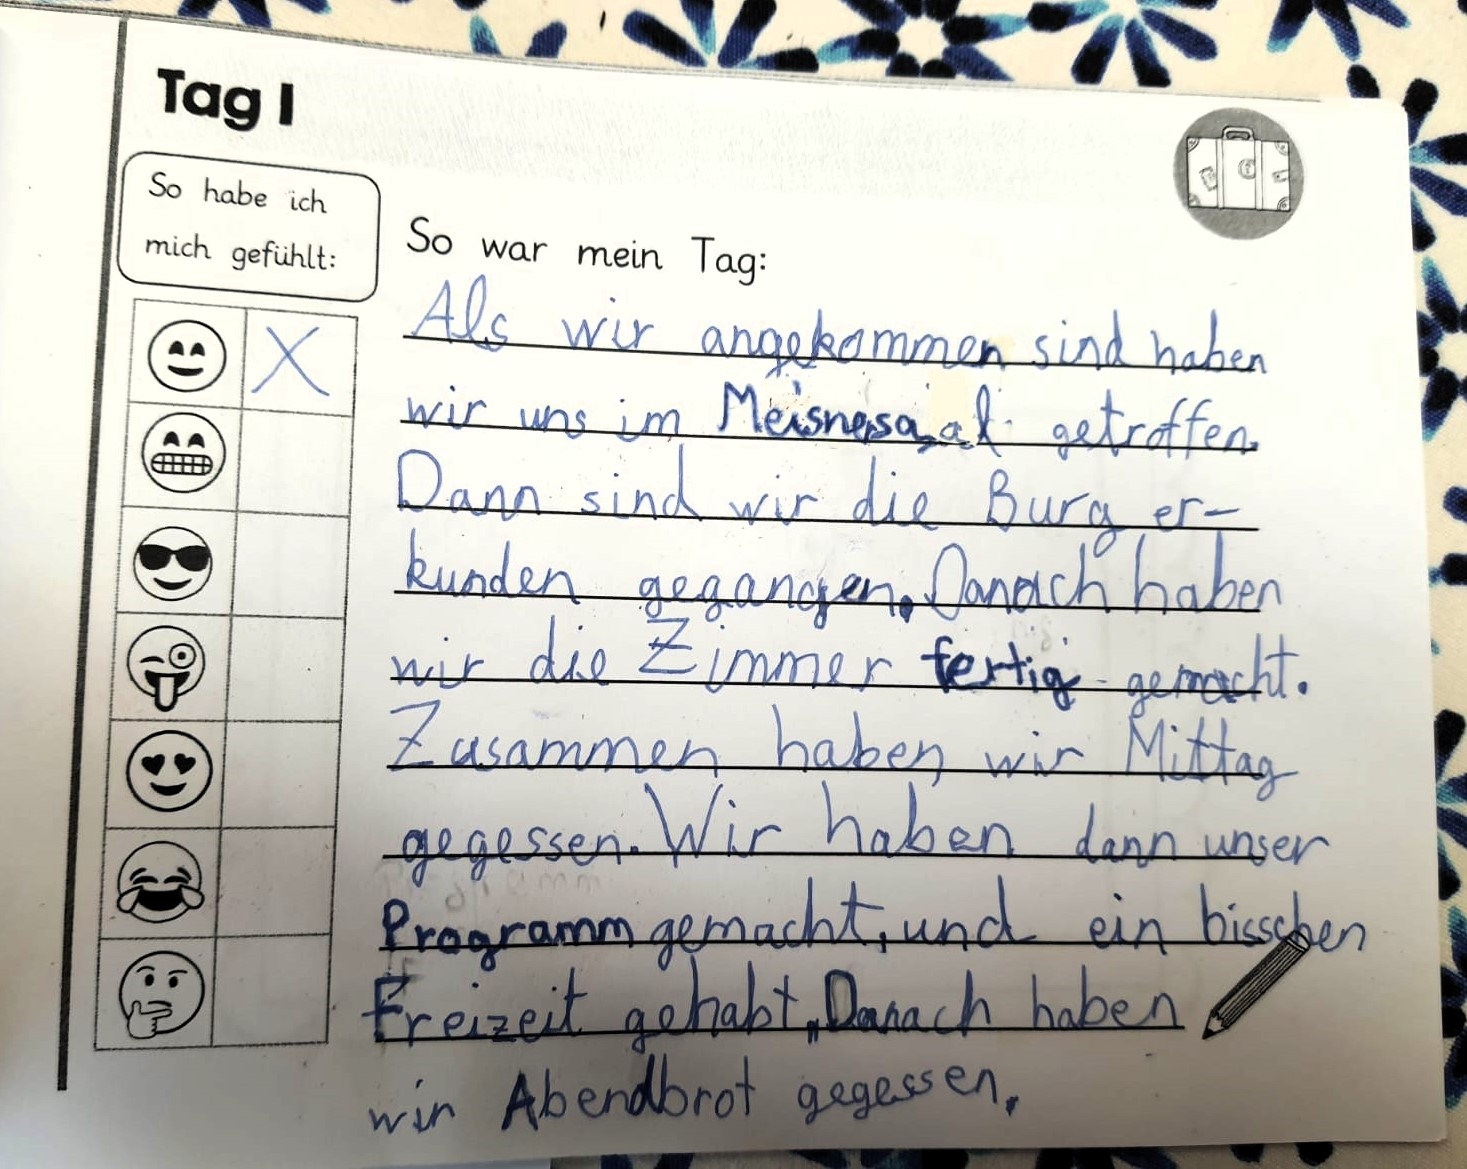 Tag 1
So habe ich
mich gefühlt:
So war mein Tag:
X
Als wir angekommen sind haben
wir uns im Meisnersaal getroffen.
Dann sind wir die Burg er-
kunden gegangen. Danach haben
wir die Zimmer fertig gemacht.
Zusammen haben wir Mittag
gegessen. Wir haben dann unser
Programm gemacht, und ein bisschen
Freizeit gehabt. Danach haben
wir Abendbrot gegessen.